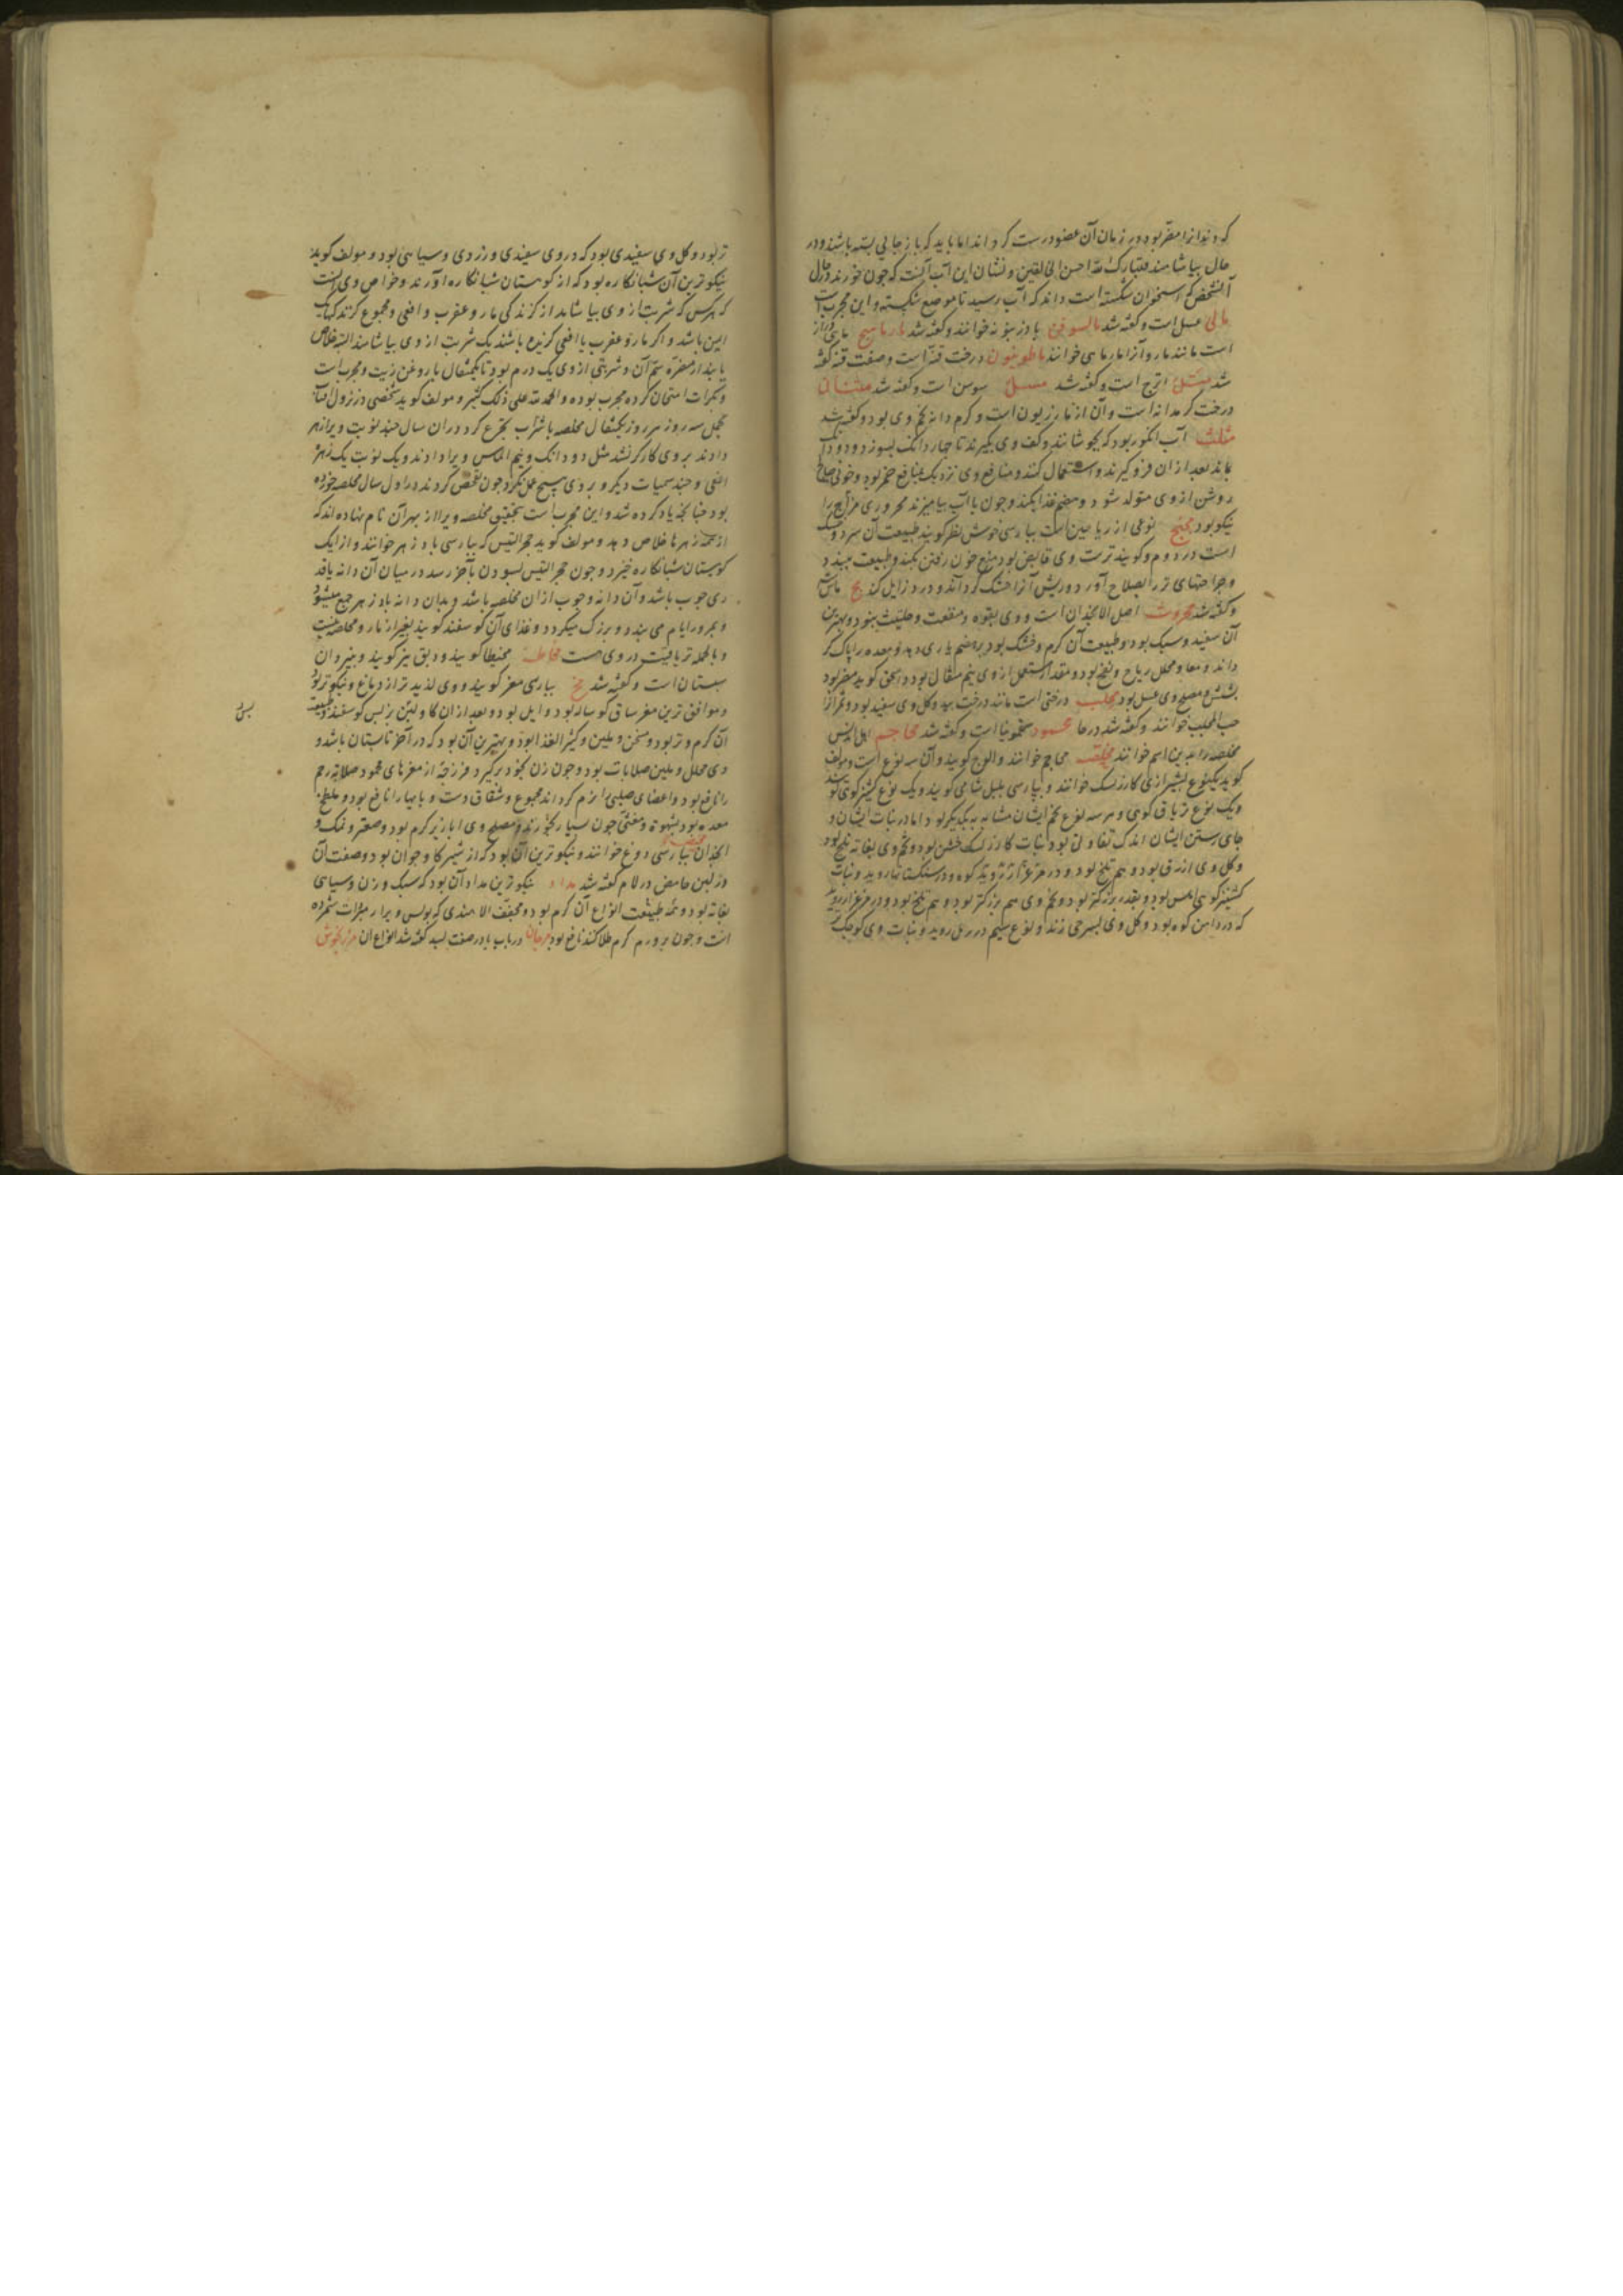 که دندانرا مضر بود در زمان آن عضو درست کرداند اما باید که باز جایی بسته باشند و در
حال بیاشامند فتبارک الله احسن الخالقین و نشان این آب آنست که چون خورند در حال
آن شخص که استخوان شکسته است داند که آب رسید تا موضع شکسته و این مجرب است
مالی عسل است و گفته شد مالسوفن بادرنبویه خوانند و گفته شد مارماهیج ماهی دراز
است مانند مار و آنرا مارماهی خوانند ماطونیون درخت قنه است و صفت قنه گفته
شد متک اترج است و گفته شد سوسن است و گفته شد مثنان
درخت کرمدانه است و آن از مازریون است و کرم دانه تخم وی بود و گفته شد
مثلث آب انگور بود که بجوشانند و کف وی بگیرند تا چهار دانگ بسوزد و دو دانگ
بماند بعد از آن فرو گیرند و استعمال کنند و منافع وی نزدیک بمنافع خمر بود و خونی صالح
روشن از وی متولد شود و هضم غذا بکند و چون با آب بیامیزند محروری مزاج را
نیکو بود نوعی از ریاحین است بپارسی خوش نظر گویند طبیعت آن سرد و خشک
است در دوم و گویند ترست وی قابض بود منع خون رفتن بکند و طبیعت ببندد
و جراحتهای تر را بصلاح آورد و ریش آنرا خشک گرداند و درد زایل کند مج ماش
و گفته شد محروث اصل الانجدان است و وی بقوه و منفعت و حلتیت بود و بهترین
آن سفید و سبک بود و طبیعت آن گرم و خشک بود بر هضم یاری دهد و معده را پاک گر
داند و معا و محلل ریاح و نفخ بود و مقدار مستعمل از وی نیم مثقال بود و اسحق گوید مضر بود
بشش و مصلح وی عسل بود محلب درختی است مانند درخت بید و گل وی سفید بود و ثمر آنرا
حب المحلب خوانند و گفته شد در حا محموده سقمونیا است و گفته شد محاجم اهل اندلس
مخلصه را بدین اسم خوانند مخلصه محاجم خوانند و الوج گویند و آن سه نوع است و مولف
گوید یکنوع بشیرازی کارزنک خوانند و بپارسی بلبل شامی گویند و یک نوع گشنیز کوهی گویند
و یک نوع تریاق کوهی و هر سه نوع تخم ایشان مشابه به یکدیگر بود اما در نبات ایشان و
جای رستن ایشان اندک تفاوتی بود نبات کارزنک خشن بود و تخم وی بغایة تلخ بود
و گل وی ازرق بود و هم تلخ بود و در مرغزار روید کوه و در سنگستانها روید و نبات
گشنیز کوهی املس بود و بقد بزرگتر بود و تخم وی هم بزرگتر بود و هم تلخ بود و در مرغزار روید
که در دامن کوه بود و گل وی بسرخی زند و نوع سیم در رمل روید و نبات وی کوچک
تر بود و گل وی سفیدی بود که در وی سفیدی و زردی و سیاهی بود و مولف گوید
نیکوترین آن شبانکاره بود که از کوهستان شبانکاره آورند و خواص وی آنست
که هر کس که شربت از وی بیاشامد از گزندگی مار و عقرب و افعی و مجموع گزندگیها
ایمن باشد و اگر مار و عقرب یا افعی گزیده باشند یک شربت از وی بیاشامند البته خلاص
یابند از مضرة سم آن و شربتی از وی یک درم بود تا یکمثقال با روغن زیت و مجرب است
و بکرات امتحان کرده مجرب بوده و الحمد لله علی ذلک کثیر و مولف گوید شخصی در نزول آفتاب
بحمل سه روز هر روز یکمثقال مخلصه با شراب تجرع کرد در آن سال چند نوبت ویرا زهر
دادند بر وی کار گر نشد مثل دو دانگ و نیم الماس ویرا دادند و یک نوبت یک زهره
افعی و چند سمیات دیگر و بر وی هیچ عمل نکرد چون تفحص کردند در اول سال مخلصه خورده
بود چنانچه یاد کرده شد و این مجرب است بتحقیق مخلصه ویرا از بهر آن نام نهاده اند که
از همه زهرها خلاص دهد و مولف گوید حجر التیس که بپارسی پادزهر خوانند و از ایک
کوهستان شبانکاره خیزد و چون حجر التیس بسودن بآخر رسد در میان آن دانه یافته
ی چوب باشد و آن دانه و چوب از آن مخلصه باشد و بدان دانه پادزهر جمع میشود
و بمرور ایام می بندد و بزرگ میگردد و غذای آن گوسفند گویند بغیر از مار و مخلصه نیست
و بالجمله تریاقیت در وی هست مخاطه مخیطا گویند و دبق نیز گویند و بشیروان
سبستان است و گفته شد مخ بپارسی مغز گویند و وی لذیذتر از دماغ و نیکوتر بود
و موافق ترین مغز ساق گوساله بود و ایل بود و بعد از آن گاو لبن بز پس گوسفند و طبیعت
آن گرم و تر بود و مسخن و ملین و کثیر الغذا بود و بهترین آن بود که در آخر تابستان باشد و
وی محلل و ملین صلابات بود و چون زن بخود برگیرد فرزجة از مغزهای محمود صلابة رحم
را نافع بود و اعضای صلبی را نرم گرداند مجموع و شقاق دست و پایها را نافع بود و ملطخ
معده بود بشهوة و مغثی چون بسیار بخورند و مصلح وی ابازیر گرم بود و صعتر و نمک و
انجدان مخیض بپارسی دوغ خوانند و نیکوترین آن بود که از شیر گاو جوان بود و صفت آن
در لبن حامض در لام گفته شد مداد نیکوترین مداد آن بود که سبک وزن و سیاهی
بغایة بود و همه طبیعت انواع آن گرم بود و مجفف الا هندی که بولس ویرا از مبردات شمرده
است و چون بر ورم گرم طلا کنند نافع بود مرجان در باب با در صفت بسد گفته شد انواع آن مرزنجوش